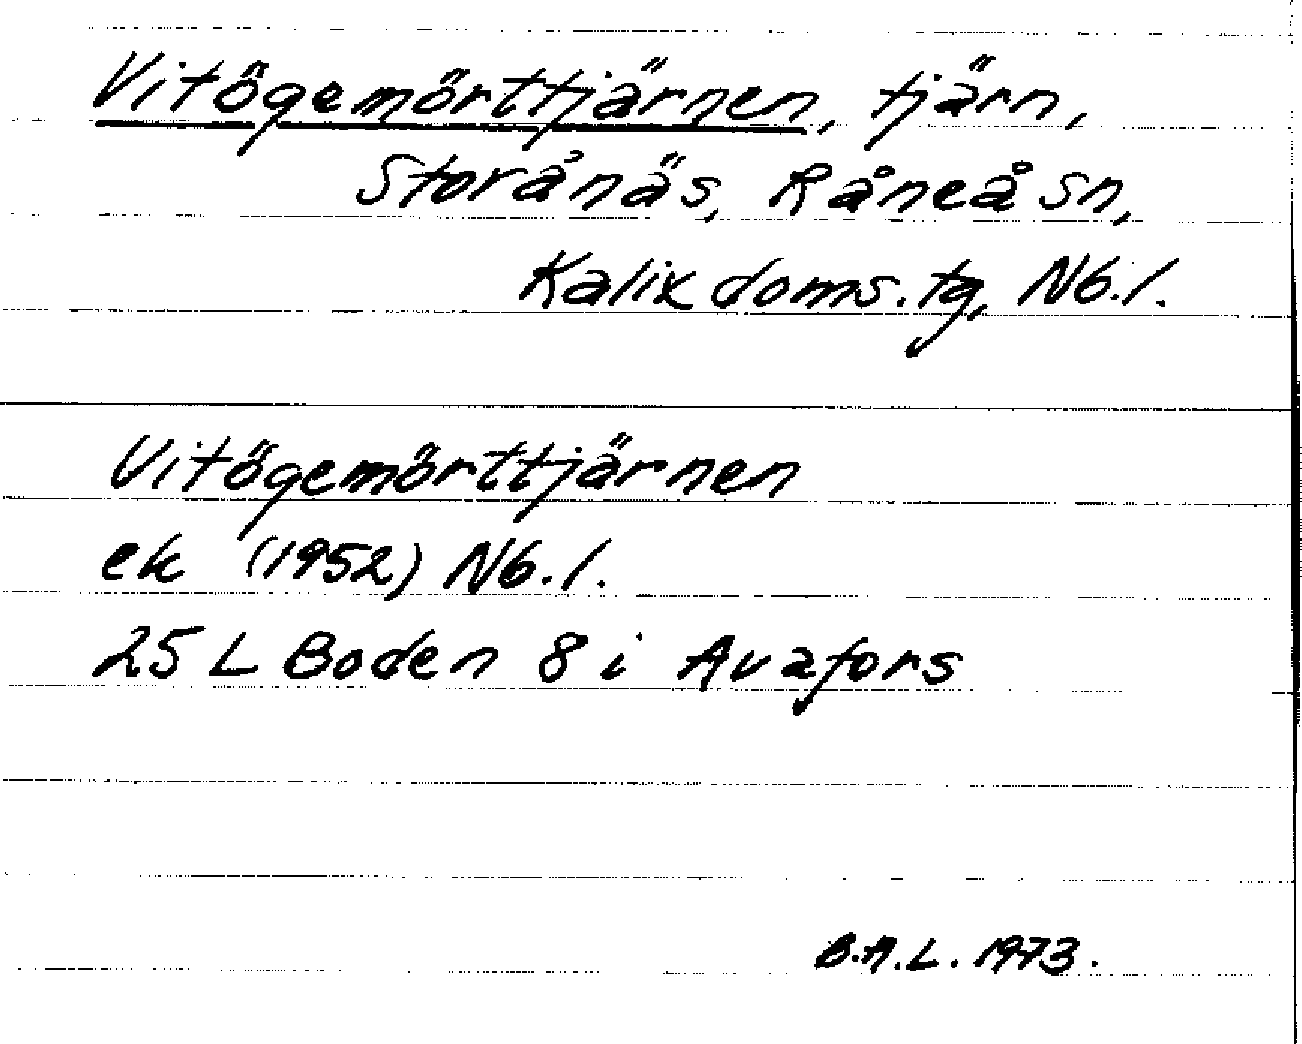 Vitögemörttjärnen, tjärn,
Storånäs, Råneå sn,
Kalix doms. tg, Nb. l.
Vitögemörttjärnen
ek (1952) Nb. l.
25 L Boden 8 i Avafors
B.A.L. 1973.